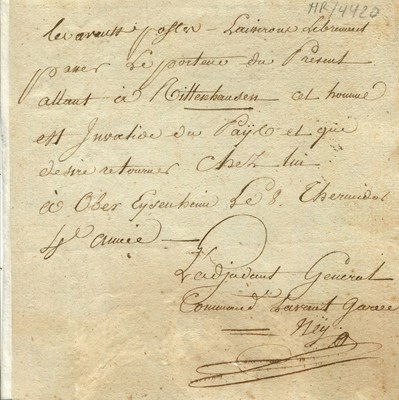 HR/4420
les avants postes Laisserons librement
passer Le porteur du Present
allant à Rittenhausen cet homme
est Invalide du Païs et que
desire retourner Chez lui
à Ober Eysenheim Le 8. Thermidor
4e année
L'adjudant Général
Command t Lavant Garde
Ney